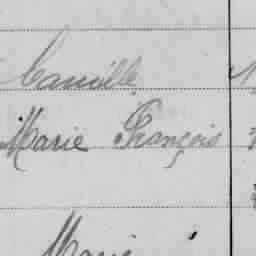 Camille
Marie François
Marie